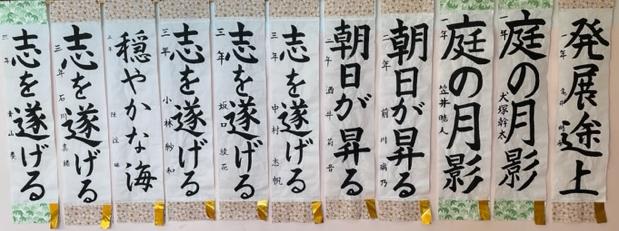 発展途上
庭の月影
一年 犬塚幹太
庭の月影
一年 笠井
朝日が昇る
二年 前川璃乃
朝日が昇る
二年 酒井
志を遂げる
三年 中村志帆
志を遂げる
三年 坂口綾花
志を遂げる
三年 小林紗和
穏やかな海
志を遂げる
三年 石川
志を遂げる
三年 青山